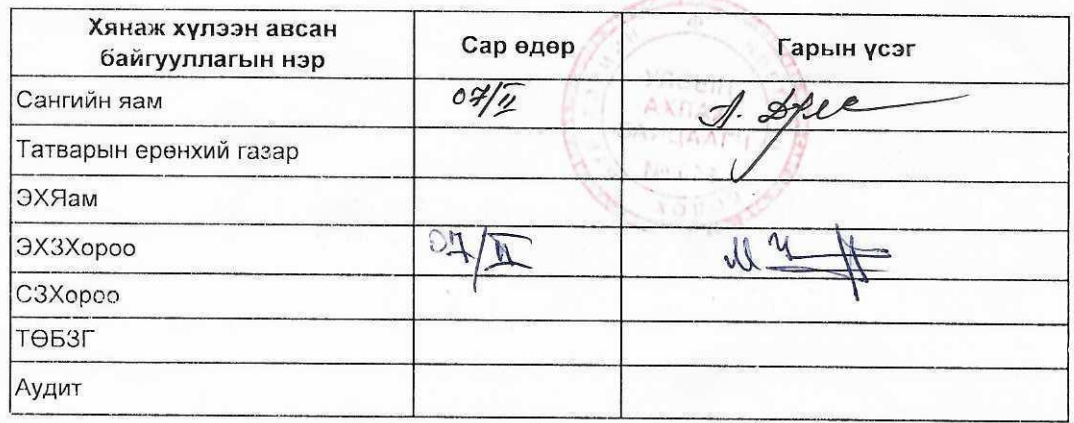 Хянаж хүлээн авсан
байгууллагын нэр
Сар өдөр
Гарын үсэг
Сангийн яам
07/II
Татварын ерөнхий газар
ЭХЯам
ЭХЗХороо
07/II
СЗХороо
ТӨБЗГ
Аудит